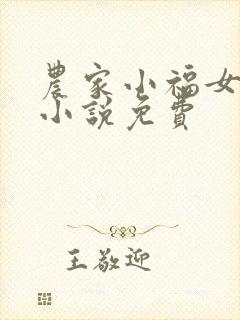 農家小福女
小說免費
王敬迎